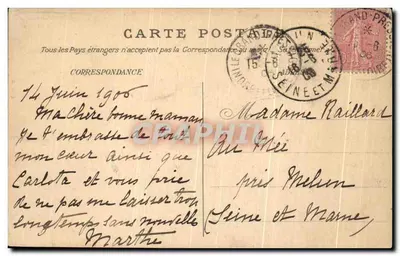 CARTE POSTALE
Tous les Pays étrangers n'acceptent pas la Correspondance au
CORRESPONDANCE
14 Juin 1906
Ma Chère bonne maman
Je t'embrasse de tout
mon cœur ainsi que
Carlota et vous prie
de ne pas me laisser trop
longtemps sans nouvelle
Marthe
Madame Raillard
Au Mée
près Melun
Seine et Marne
SEINE ET M
CPARAMA